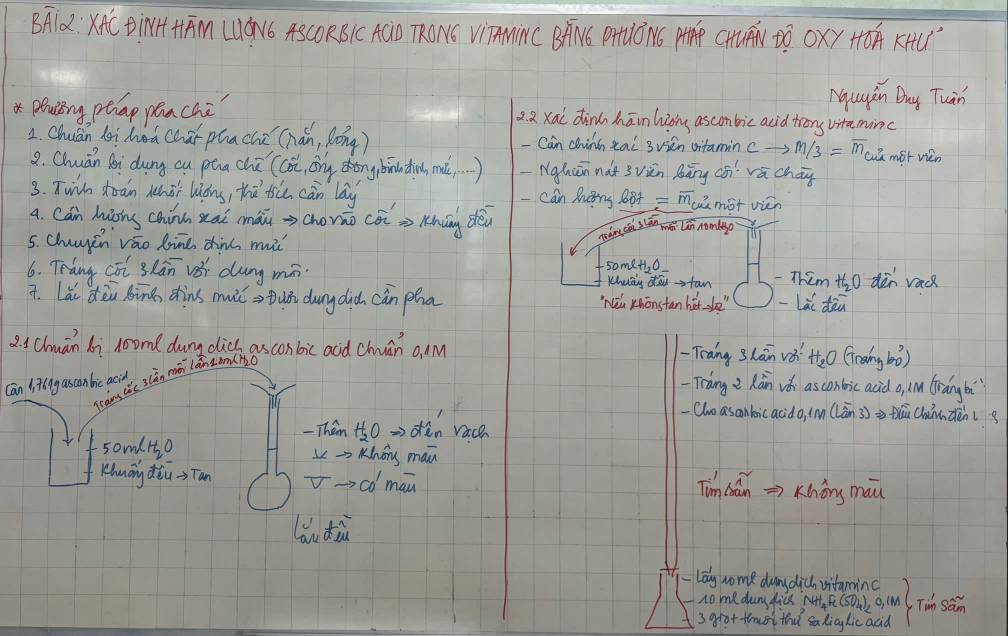 BÀI 2: XÁC ĐỊNH HÀM LƯỢNG ASCORBIC ACID TRONG VITAMIN C BẰNG PHƯƠNG PHÁP CHUẨN ĐỘ OXY HÓA KHỬ
Nguyễn Duy Tuân
* Phương pháp pha chế
1. Chuẩn bị hoá chất pha chế (rắn, lỏng)
2. Chuẩn bị dụng cụ pha chế (cốc, ống đong, bình định mức,....)
3. Tính toán khối lượng, thể tích cần lấy
4. Cân lượng chính xác mẫu → cho vào cốc ⇒ khuấy đều
5. Chuyển vào bình định mức
6. Tráng cốc 3 lần với dung môi
7. Lắc đều bình định mức ⇒ Được dung dịch cần pha
2.1 Chuẩn bị 100ml dung dịch ascorbic acid chuẩn 0,1M
Cân 1,761g ascorbic acid
Tráng cốc 3 lần mỗi lần 10ml H2O
50ml H2O
Khuấy đều → Tan
- Thêm H2O ⇒ đến vạch
→ không màu
→ có màu
Lắc đều
2.2 Xác định hàm lượng ascorbic acid trong vitamin c
- Cân chính xác 3 viên vitamin C → m/3 = m̅ của một viên
- Nghiền nát 3 viên bằng cối và chày
- Cân lượng bột = m̅ của một viên
Tráng cốc 3 lần mỗi lần 10ml H2O
50ml H2O
Khuấy đều → tan
"Nếu không tan hết → lọc"
- Thêm H2O đến vạch
- Lắc đều
- Tráng 3 lần với H2O (Tráng bỏ)
- Tráng 2 lần với ascorbic acid 0,1M (Tráng bỏ)
- Cho ascorbic acid 0,1M (Lần 3) ⇒ Điều chỉnh đến
Tím sẫm ⇒ không màu
- Lấy 10ml dung dịch vitamin C
- 10 ml dung dịch NH4Fe(SO4)2 0,1M
- 3 giọt thuốc thử salicylic acid
Tím sẫm